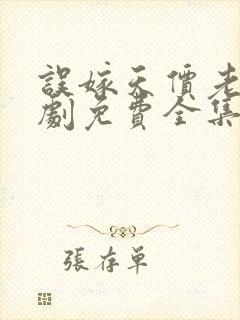 誤嫁天價老
劇免費全集
張存單